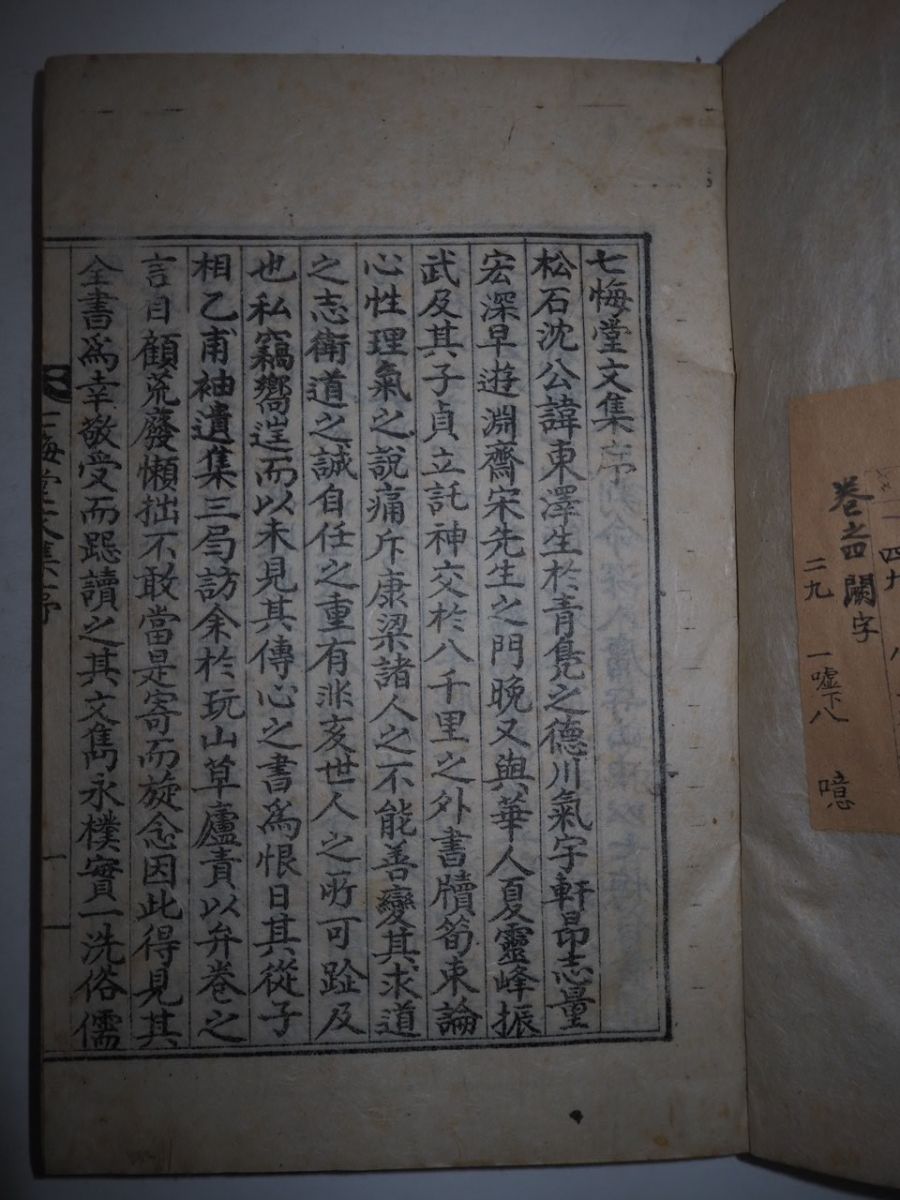 七悔堂文集序
松石沈公諱東澤生於青鳧之德川氣宇軒昂志量
宏深早遊淵齋宋先生之門晚又與華人夏靈峰振
武及其子貞立託神交於八千里之外書牘筍束論
心性理氣之說痛斥康梁諸人之不能善變其求道
之志衛道之誠自任之重有非亥世人之所可跂及
也私竊嚮𨓏而以未見其傳心之書爲恨日其從子
相乙甫袖遺集三局訪余於玩山草廬責以弁卷之
言自顧荒廢懶拙不敢當是寄而旋念因此得見其
全書爲幸敬受而跽讀之其文雋永樸實一洗俗儒
七悔堂文集序 一
四九
卷之四闕字
二九 一噓下八 噫